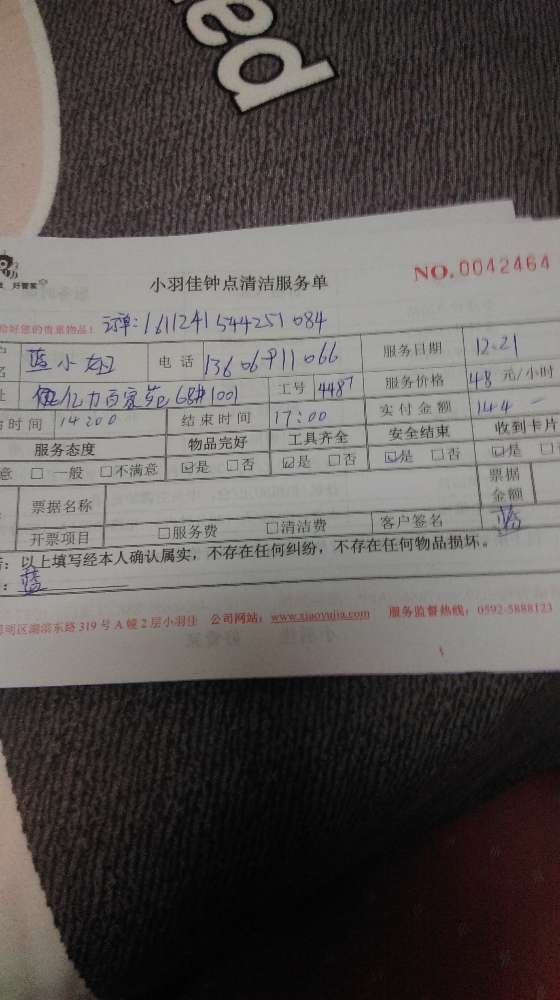 ed
好管家
小羽佳钟点清洁服务单
NO.0042464
给好您的贵重物品！ 订单：1611241544251084
名 蓝小姐 电话 13606911066 服务日期 12.21
址 亿力百家苑68#1001 工号 4487 服务价格 48 元/小时
时间 14:00 结束时间 17:00 实付金额 144 —
服务态度 物品完好 工具齐全 安全结束 收到卡片
意 □一般 □不满意 ☑是 □否 ☑是 □否 ☑是 □否 ☑是 □
票据名称 票据金额
开票项目 □服务费 □清洁费 客户签名 蓝
：以上填写经本人确认属实，不存在任何纠纷，不存在任何物品损坏。
：蓝
明区湖滨东路319号A幢2层小羽佳 公司网站：www.xiaoyujia.com 服务监督热线：0592-5888123